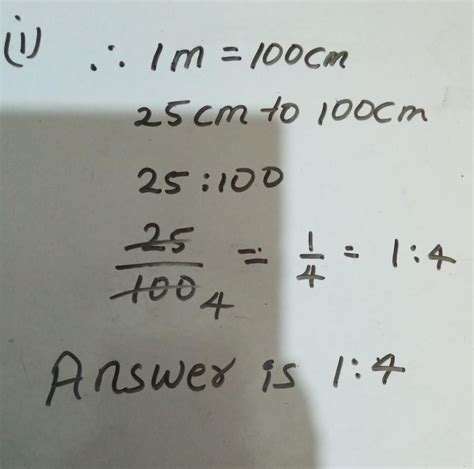 (i) ∴ 1m = 100cm
25cm to 100cm
25:100
25/100 4 = 1/4 = 1:4
Answer is 1:4